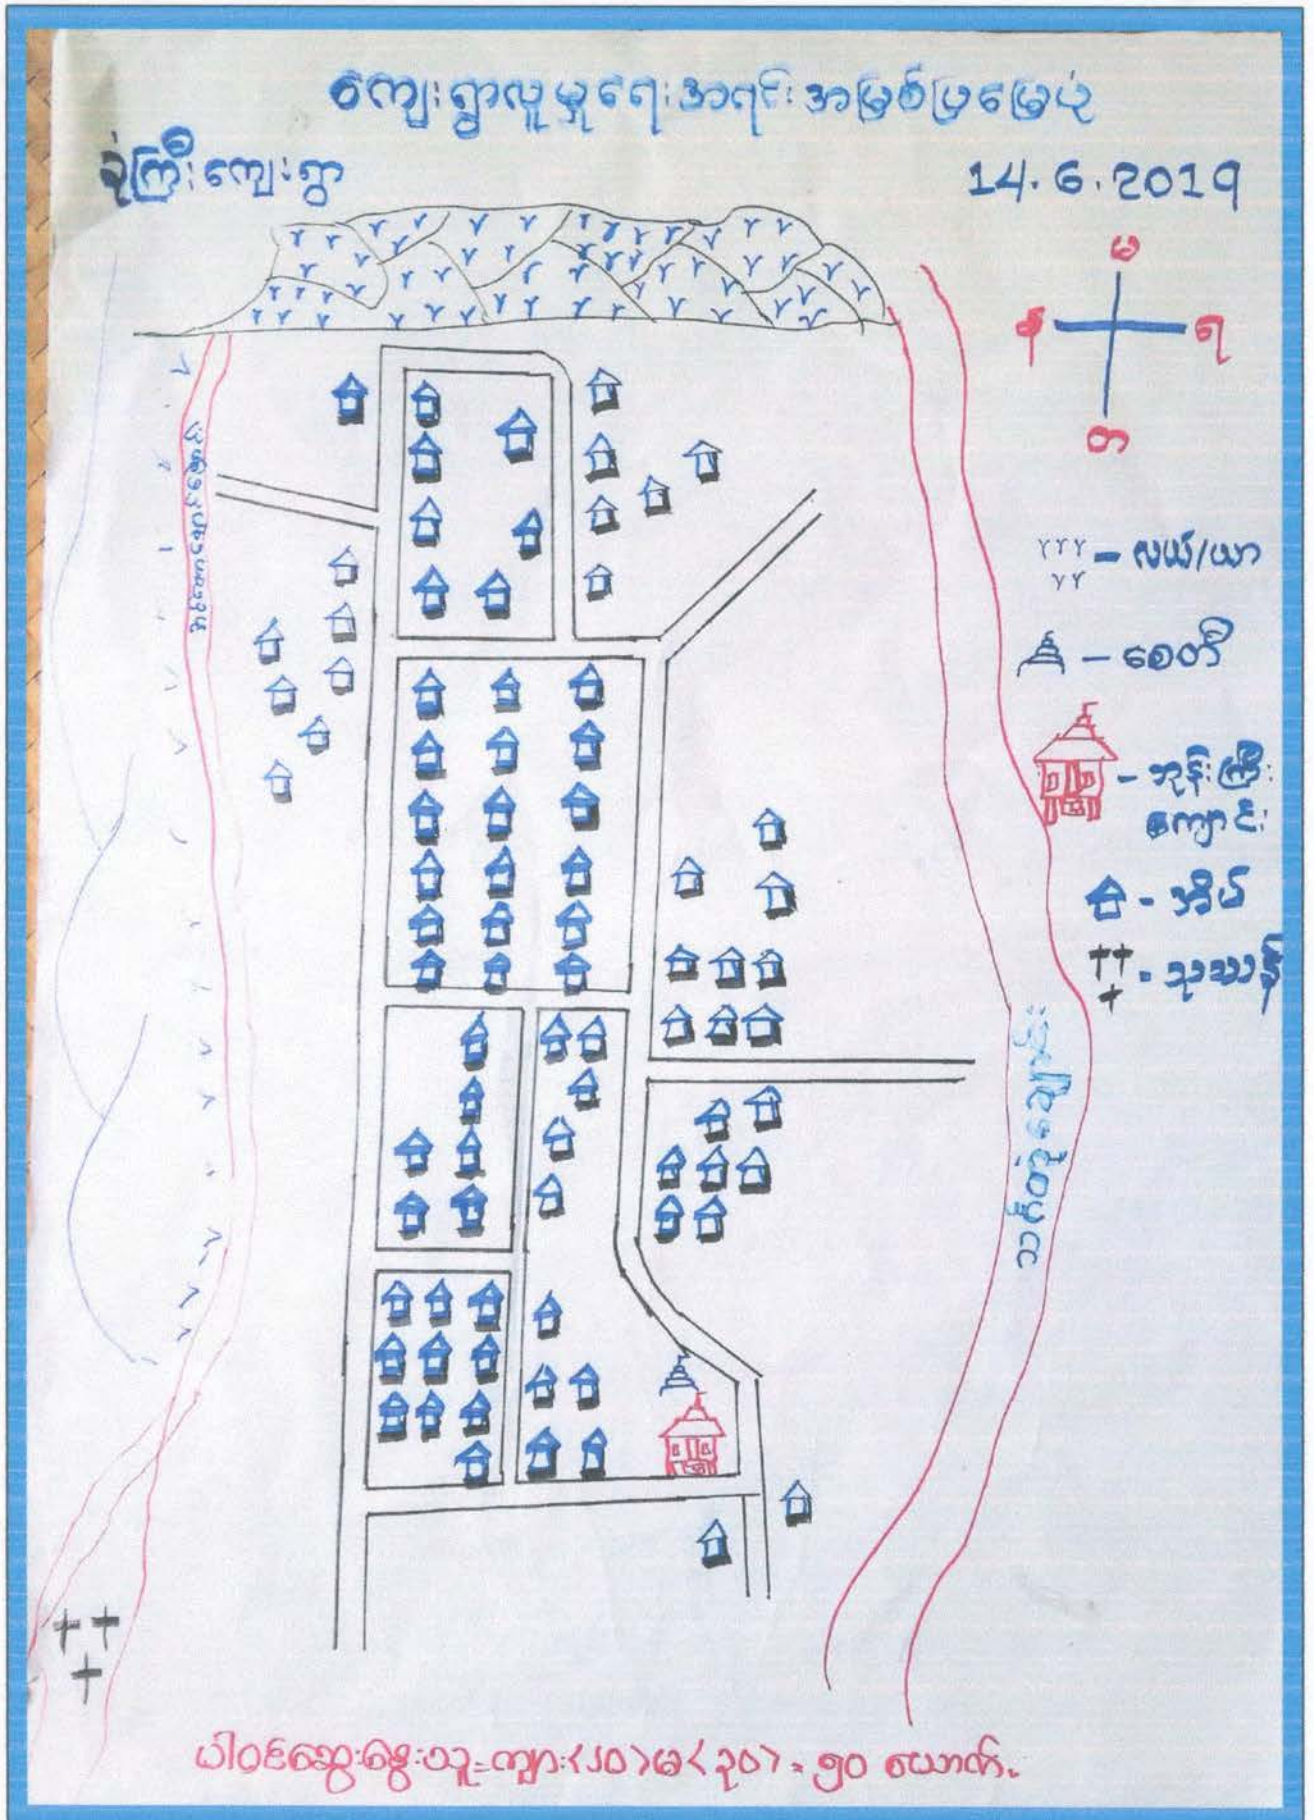 ကျေးရွာလူမှုရေးအရင်းအမြစ်ပြမြေပုံ
ခုံကြီးကျေးရွာ
14.6.2019
မ
န
ရ
တ
လယ်/ယာ
စေတီ
ဘုန်းကြီး
ကျောင်း
အိမ်
သုသာန်
ပါဝင်ဆွေးနွေးသူ=ကျား<၂၀>မ<၃၀>=၅၀ ယောက်.